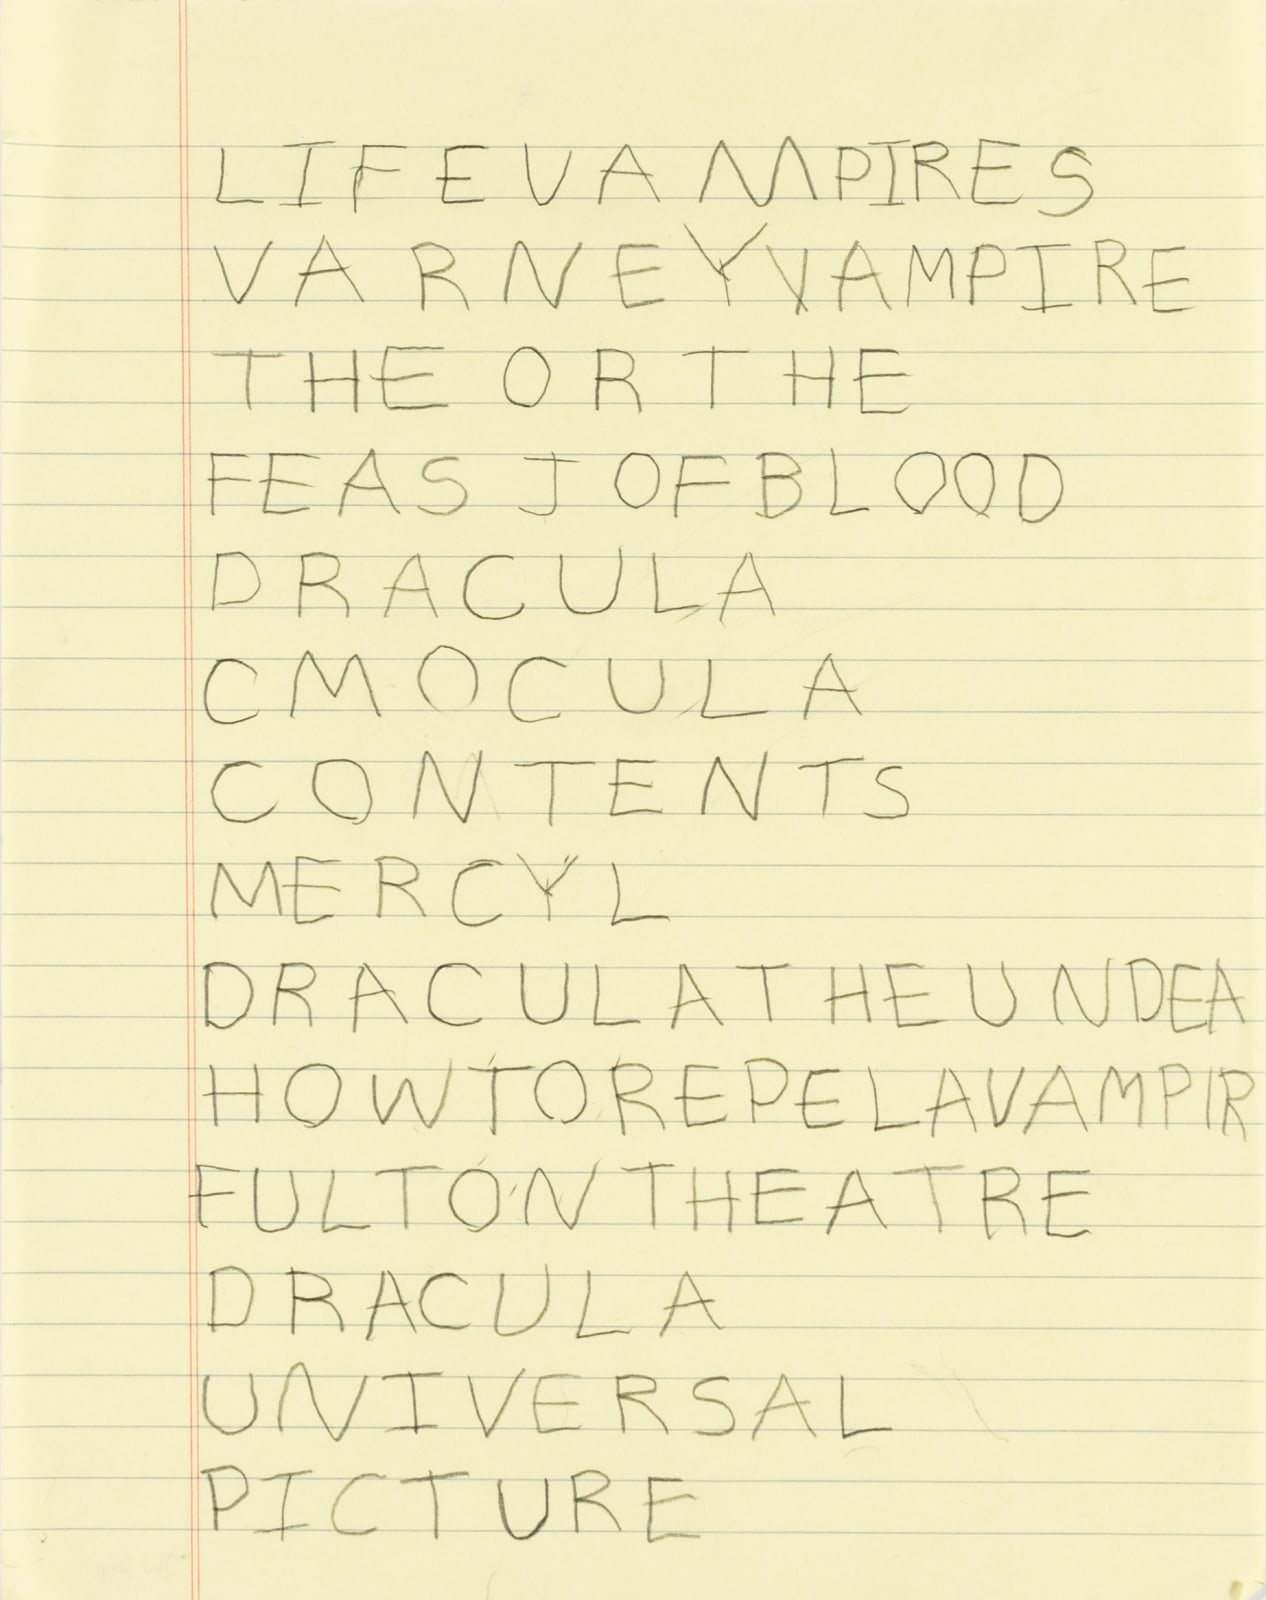 LIFE VAMPIRES
VARNEY VAMPIRE
THE OR THE
FEAST OF BLOOD
DRACULA
CMOCULA
CONTENTS
MERCYL
DRACULA THE UNDEA
HOW TO REPEL A VAMPIR
FULTON THEATRE
DRACULA
UNIVERSAL
PICTURE